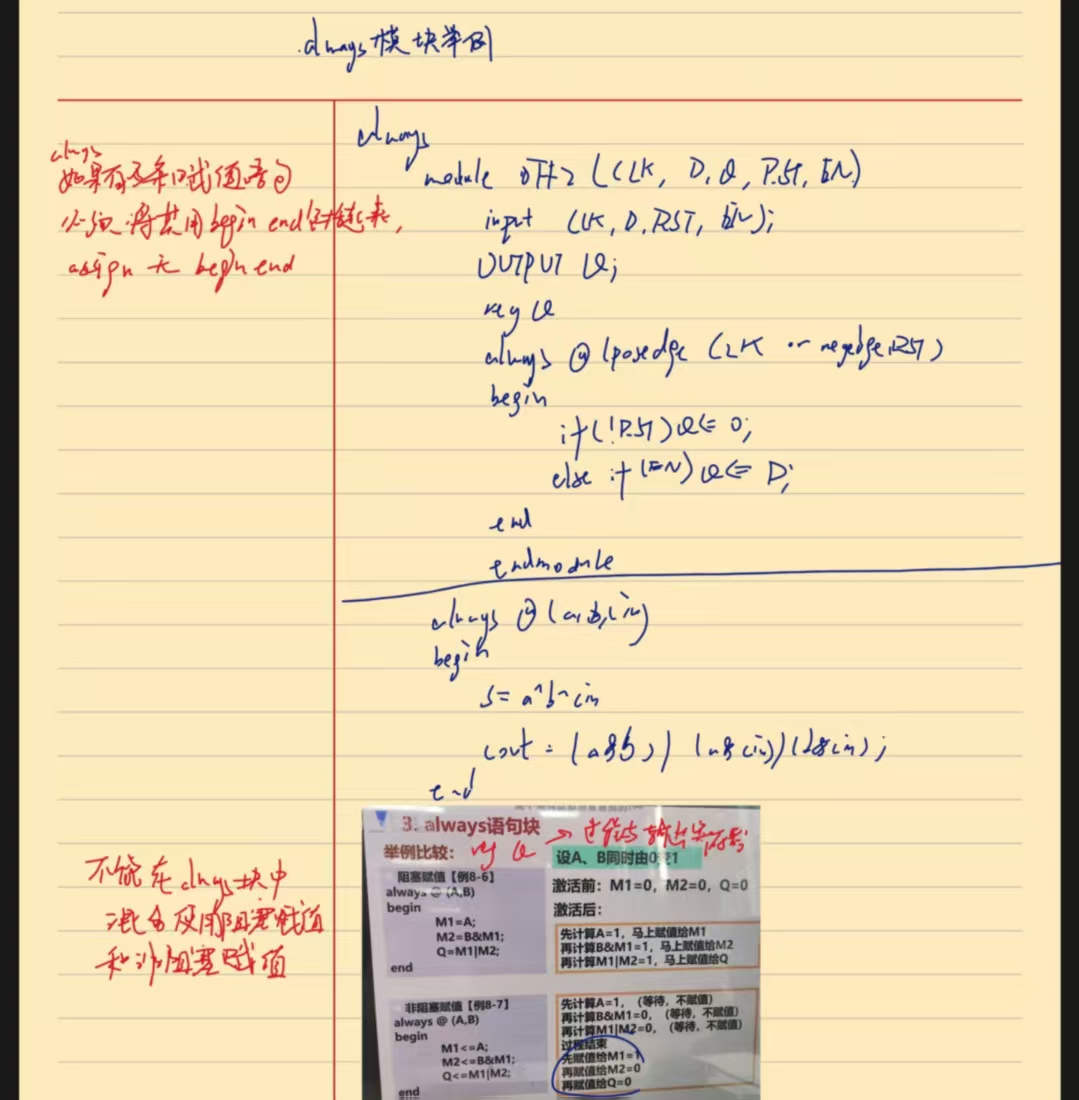 always模块举例
always
如果有多条的赋值语句
必须将其用begin end
assign 无 begin end
always
module DFF2 (CLK, D, Q, RST, EN)
input CLK, D, RST, EN);
OUTPUT Q;
reg Q
always @ (posedge CLK or negedge RST)
begin
if(!RST) Q<= 0;
else if (EN) Q<= D;
end
endmodule
always @ (a,b,cin)
begin
S= a^b^cin
cout = (a&b)| (a&cin)|(b&cin);
end
3. always语句块
举例比较： reg Q
设A、B同时由0变1
阻塞赋值【例8-6】
always @ (A,B)
begin
M1=A;
M2=B&M1;
Q=M1|M2;
end
激活前：M1=0，M2=0，Q=0
激活后：
先计算A=1，马上赋值给M1
再计算B&M1=1，马上赋值给M2
再计算M1|M2=1，马上赋值给Q
非阻塞赋值【例8-7】
always @ (A,B)
begin
M1<=A;
M2<=B&M1;
Q<=M1|M2;
end
先计算A=1，（等待，不赋值）
再计算B&M1=0，（等待，不赋值）
再计算M1|M2=0，（等待，不赋值）
过程结束
先赋值给M1=1
再赋值给M2=0
再赋值给Q=0
不能在always块中
混合使用阻塞赋值
和非阻塞赋值